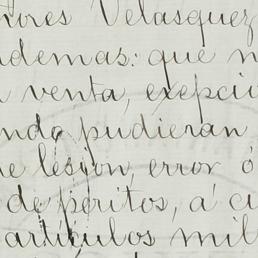 nores Velasquez
ademas: que n
venta, exepcio
ndo pudieran
e lesion, error ó
de peritos, á cu
articulos mil